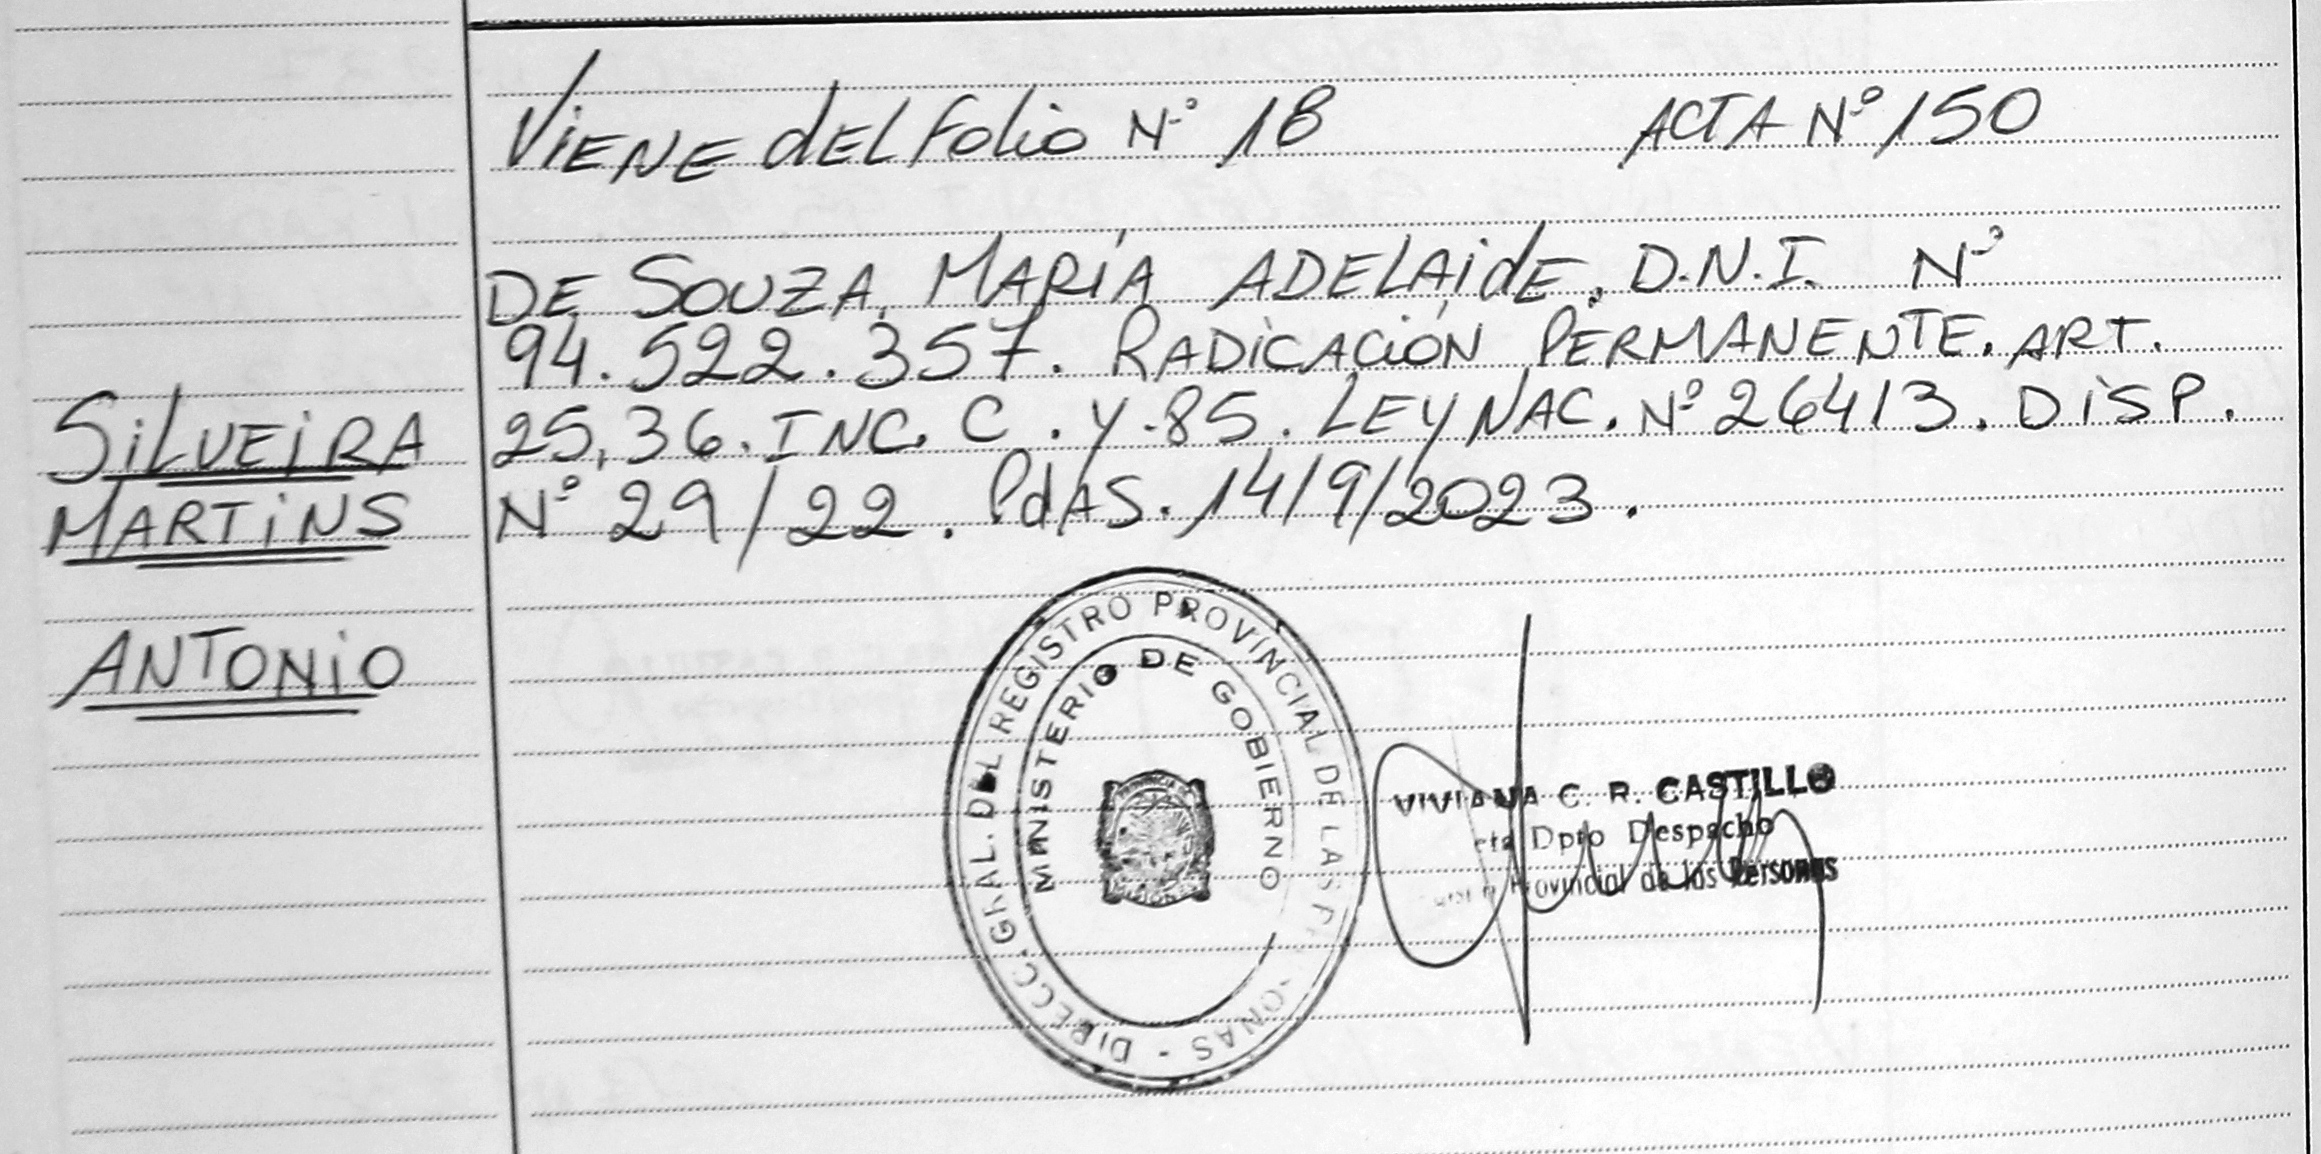 Viene del Folio N° 18 ACTA N° 150
DE SOUZA, MARÍA ADELAIDE. D.N.I. N°
94.522.357. RADICACIÓN PERMANENTE. ART.
25,36. INC. C. Y.85. LEY NAC. N° 26413. DISP.
N° 29/22. Pdas. 14/9/2023.
SILVEIRA
MARTINS
ANTONIO
DIRECC. GRAL. DEL REGISTRO PROVINCIAL DE LAS
MINISTERIO DE GOBIERNO
VIVIANA C. R. CASTILLO
Dpto Despacho
Provincial de las Personas